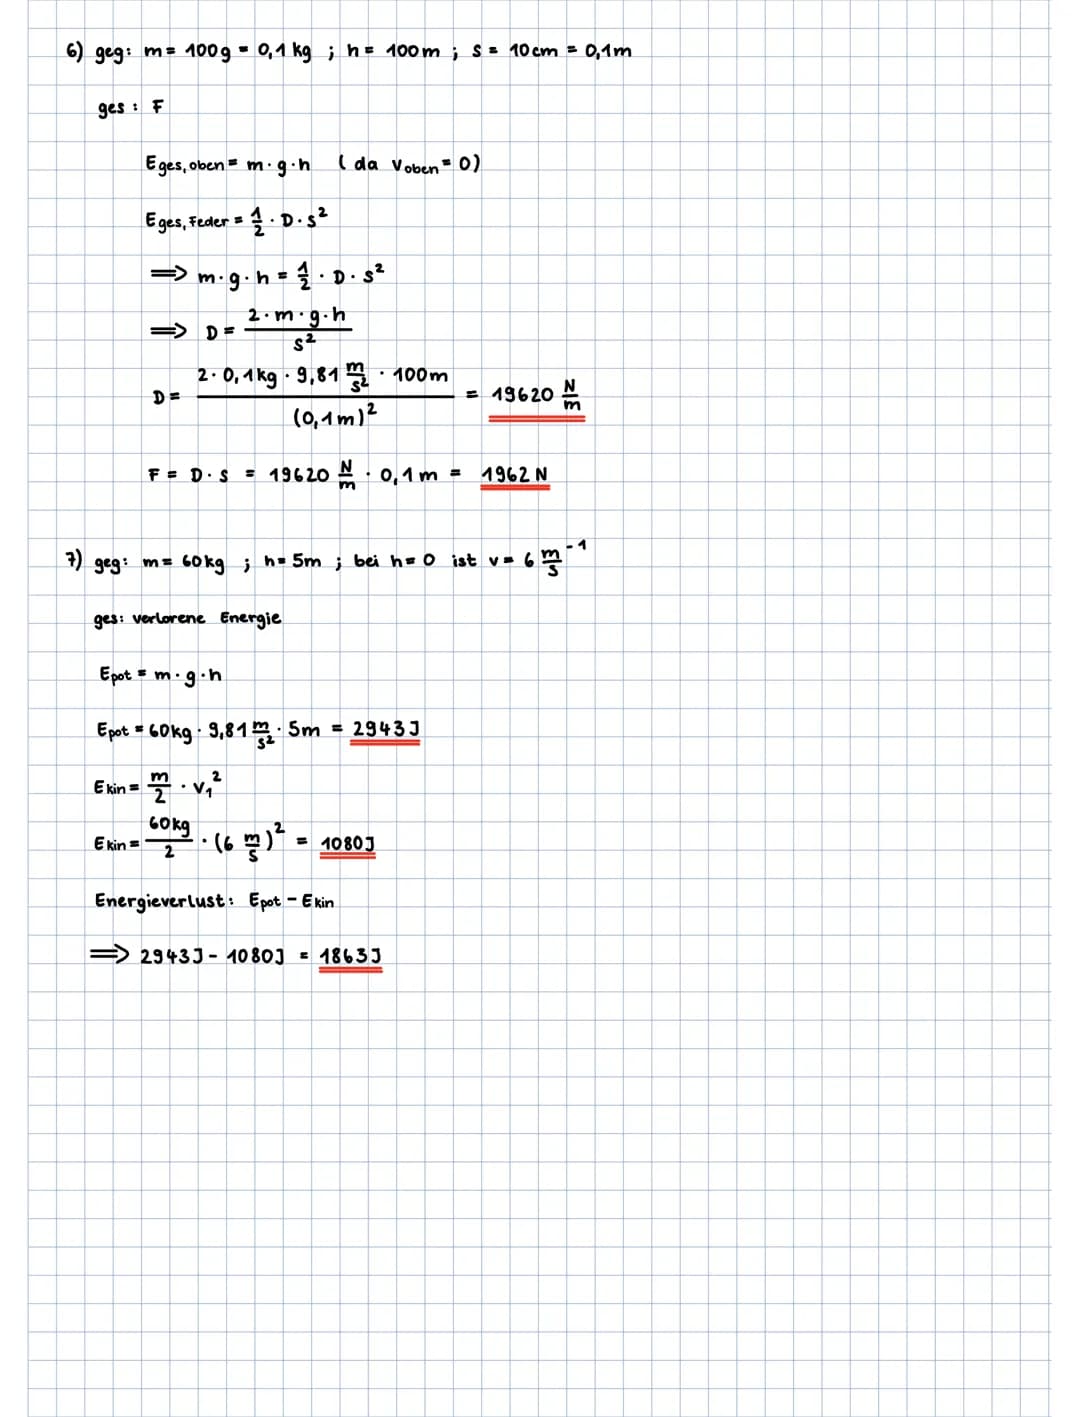 6) geg: m = 100g = 0,1 kg ; h = 100m ; s = 10cm = 0,1m
ges : F
Eges,oben = m · g · h ( da Voben = 0)
Eges,Feder = 1/2 · D · s²
⟹ m · g · h = 1/2 · D · s²
⟹ D = 2 · m · g · h / s²
D = 2 · 0,1kg · 9,81 m/s² · 100m / (0,1m)² = 19620 N/m
F = D · s = 19620 N/m · 0,1m = 1962 N
7) geg: m = 60kg ; h = 5m ; bei h = 0 ist v = 6 m/s⁻¹
ges: verlorene Energie
Epot = m · g · h
Epot = 60kg · 9,81 m/s² · 5m = 2943J
Ekin = m/2 · v₁²
Ekin = 60kg/2 · (6 m/s)² = 1080J
Energieverlust: Epot - Ekin
⟹ 2943J - 1080J = 1863J